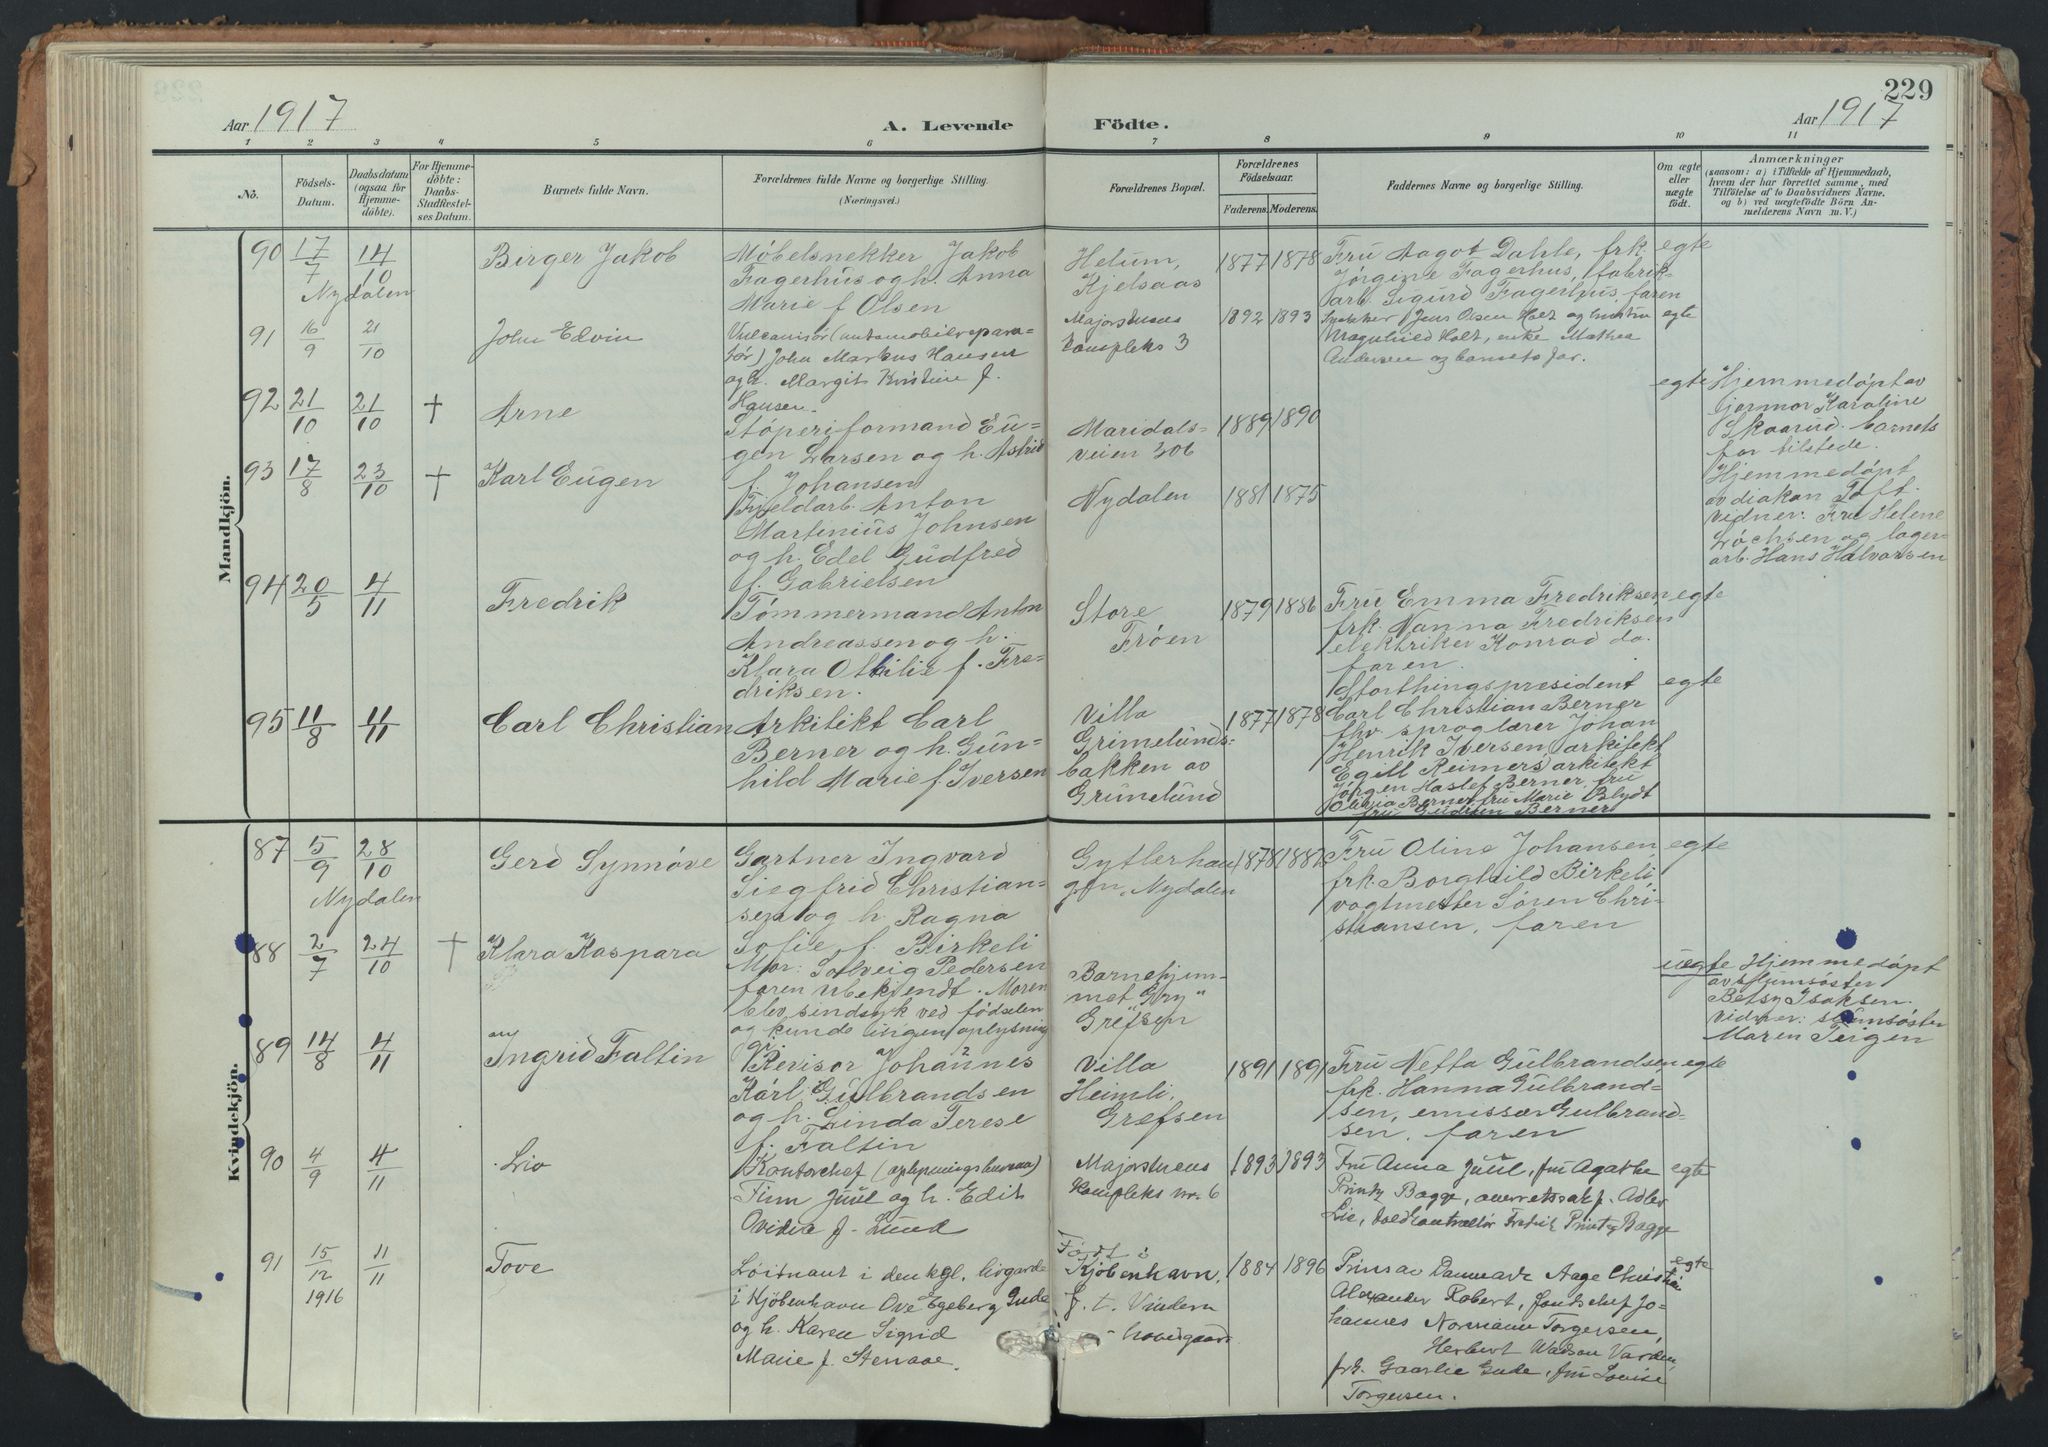 229
Aar 1917
A. Levende Födte.
Aar 1917
1 2 3 4 5 6 7 8 9 10 11
No.
Födsels-
Datum.
Daabsdatum
(ogsaa for
Hjemme-
döbte).
For Hjemme-
döbte:
Daabs-
Stadfæstel-
ses Datum.
Barnets fulde Navn.
Forældrenes fulde Navne og borgerlige Stilling.
(Næringsvei.)
Forældrenes Bopæl.
Forældrenes
Födselsaar.
Faderens. Moderens.
Faddernes Navne og borgerlige Stilling.
Om ægte
eller
uægte
födt.
Anmærkninger
(saasom: a) i Tilfælde af Hjemmedaab,
hvem der har forrettet samme, med
Tilföielse af to Daabsvidners Navne.
og b) ved uægtefödte Börn An-
melderens Navn m. V.)
Mandkjön.
90 17/7 14/10
Nydalen
Birger Jakob
Møbelsnekker Jakob
Fagerhus og h. Anna
Marie f Olsen
Helum,
Kjelsaas
1877 1878
Fru Aagot Dahle, frk.
Jørgine Fagerhus, fabrik-
arb. Sigurd Fagerhus, faren
egte
91 16/9 21/10
John Edvin
Vulcanisør (automobilrepara-
tør) John Markus Hansen
og h. Margit Kristine f.
Hansen.
Majorstuens
kompleks 3
1892 1893
Snekker Jens Olsen Holt og hustru
Ragnhild Holt, enke Mathea
Andersen og barnets far.
egte
92 21/10 21/10 †
Arne
Støperiformand Eu-
gen Larsen og h. Astrid
f. Johansen
Maridals-
veien 306
1889 1890
egte
Hjemmedøpt av
jormor Karoline
Skaarud. barnets
far tilstede.
93 17/8 23/10 †
Karl Eugen
Fjeldarb. Anton
Martinius Johnsen
og h. Edel Gudfred
f. Gabrielsen
Nydalen
1881 1875
Hjemmedøpt
av diakon Toft.
Vidner: Fru Helene
Lochsen og lager-
arb. Hans Halvorsen
94 20/5 4/11
Fredrik
Tømmermand Anton
Andreassen og h.
Klara Otilie f. Fre-
driksen.
Store
Frøen
1879 1886
Fru Emma Fredriksen
frk. Nanna Fredriksen
elektriker Konrad do.
faren.
egte
95 11/8 11/11
Carl Christian
Arkitekt Carl
Berner og h. Gun-
hild Marie f. Iversen
Villa
Grimelunds-
bakken av
Grimelund
1877 1878
Storthingspresident
Carl Christian Berner
fhv. sproglærer Johan
Henrik Iversen, arkitekt
Egill Reimers, arkitekt
Jørgen Haslef Berner, fru
Olivia Berner, fru Marie Blydt
fru Gudrun Berner
egte
Kvindekjön.
87 5/9 28/10
Nydalen
Gerd Synnøve
Gartner Ingvard
Siegfrid Christian-
sen og h. Ragna
Sofie f. Birkeli
Gytlerhau
gen, Nydalen
1878 1887
Fru Oline Johansen,
frk. Borghild Birkeli
vagtmetter Søren Chri-
stiansen, faren
egte
88 2/7 24/10 †
Klara Kaspara
Mor: Solveig Pedersen
faren ubekjendt. Moren
blev sindsyk ved fødselen
og kunde ingen oplysning
gi.
Barnehjem-
met "Gry"
Grefsen
uegte
Hjemmedøpt
av hjemsøster
Betsy Isaksen.
Vidner: søster
Maren Teigen
89 14/8 4/11
Ingrid Faltin
Revisor Johannes
Karl Gulbrandsen
og h. Linda Terese
f. Faltin
Villa
Heimli,
Grefsen
1891 1891
Fru Netta Gulbrandsen
frk. Hanna Gulbrand-
sen, emissær Gulbrand-
sen, faren
egte
90 4/9 4/11
Liv
Kontorchef (oplysningsbureau)
Finn Juul og h. Edit
Ovidia f. Lund
Majorstuens
kompleks nr. 6
1893 1893
Fru Anna Juul, fru Agathe
Printz Bagge, overretssakf. Adler
Lie, toldkontrollør Fredrik Printz Bagge
egte
91 15/12 1916 11/11
Tove
Løitnant i den kgl. livgarde
i Kjøbenhavn Ove Egeberg Gude
og h. Karen Sigrid
Marie f. Stenaae.
Født i
Kjøbenhavn,
f. t. Vindern
hovedgaard
1884 1896
Prins av Danmark Aage Christian
Alexander Robert, Johannes Normann Torgersen,
Herbert Watson Varden,
frk. Gude, fru Louise
Torgersen.
egte